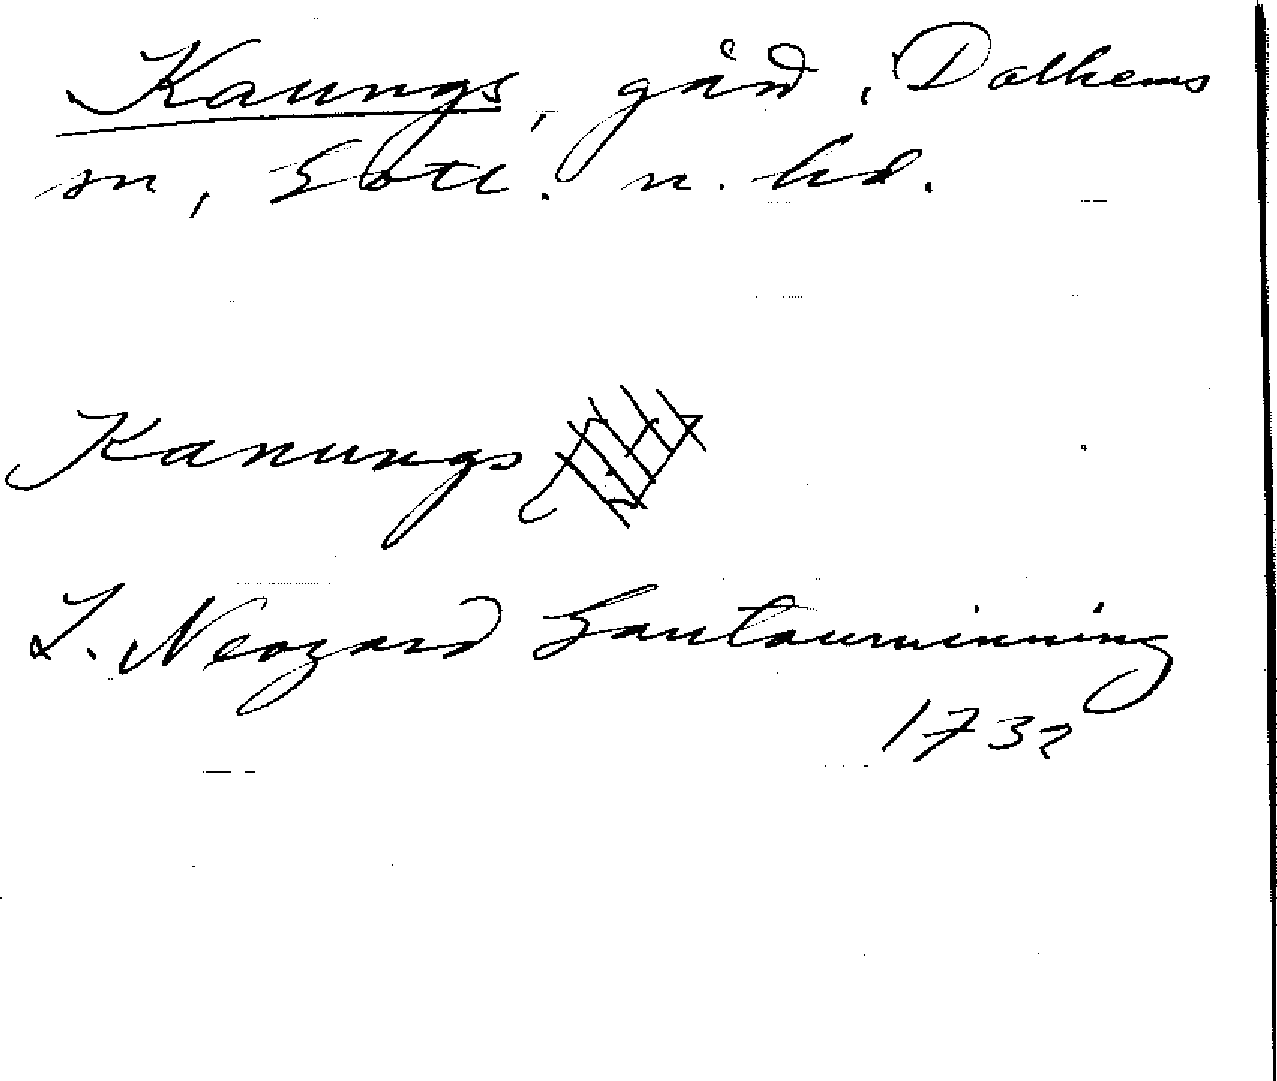 Kaungs, gård, Dalhems
sn, Gotl. n. hd.
Kanungs
L. Neogard Gautauminning
1732